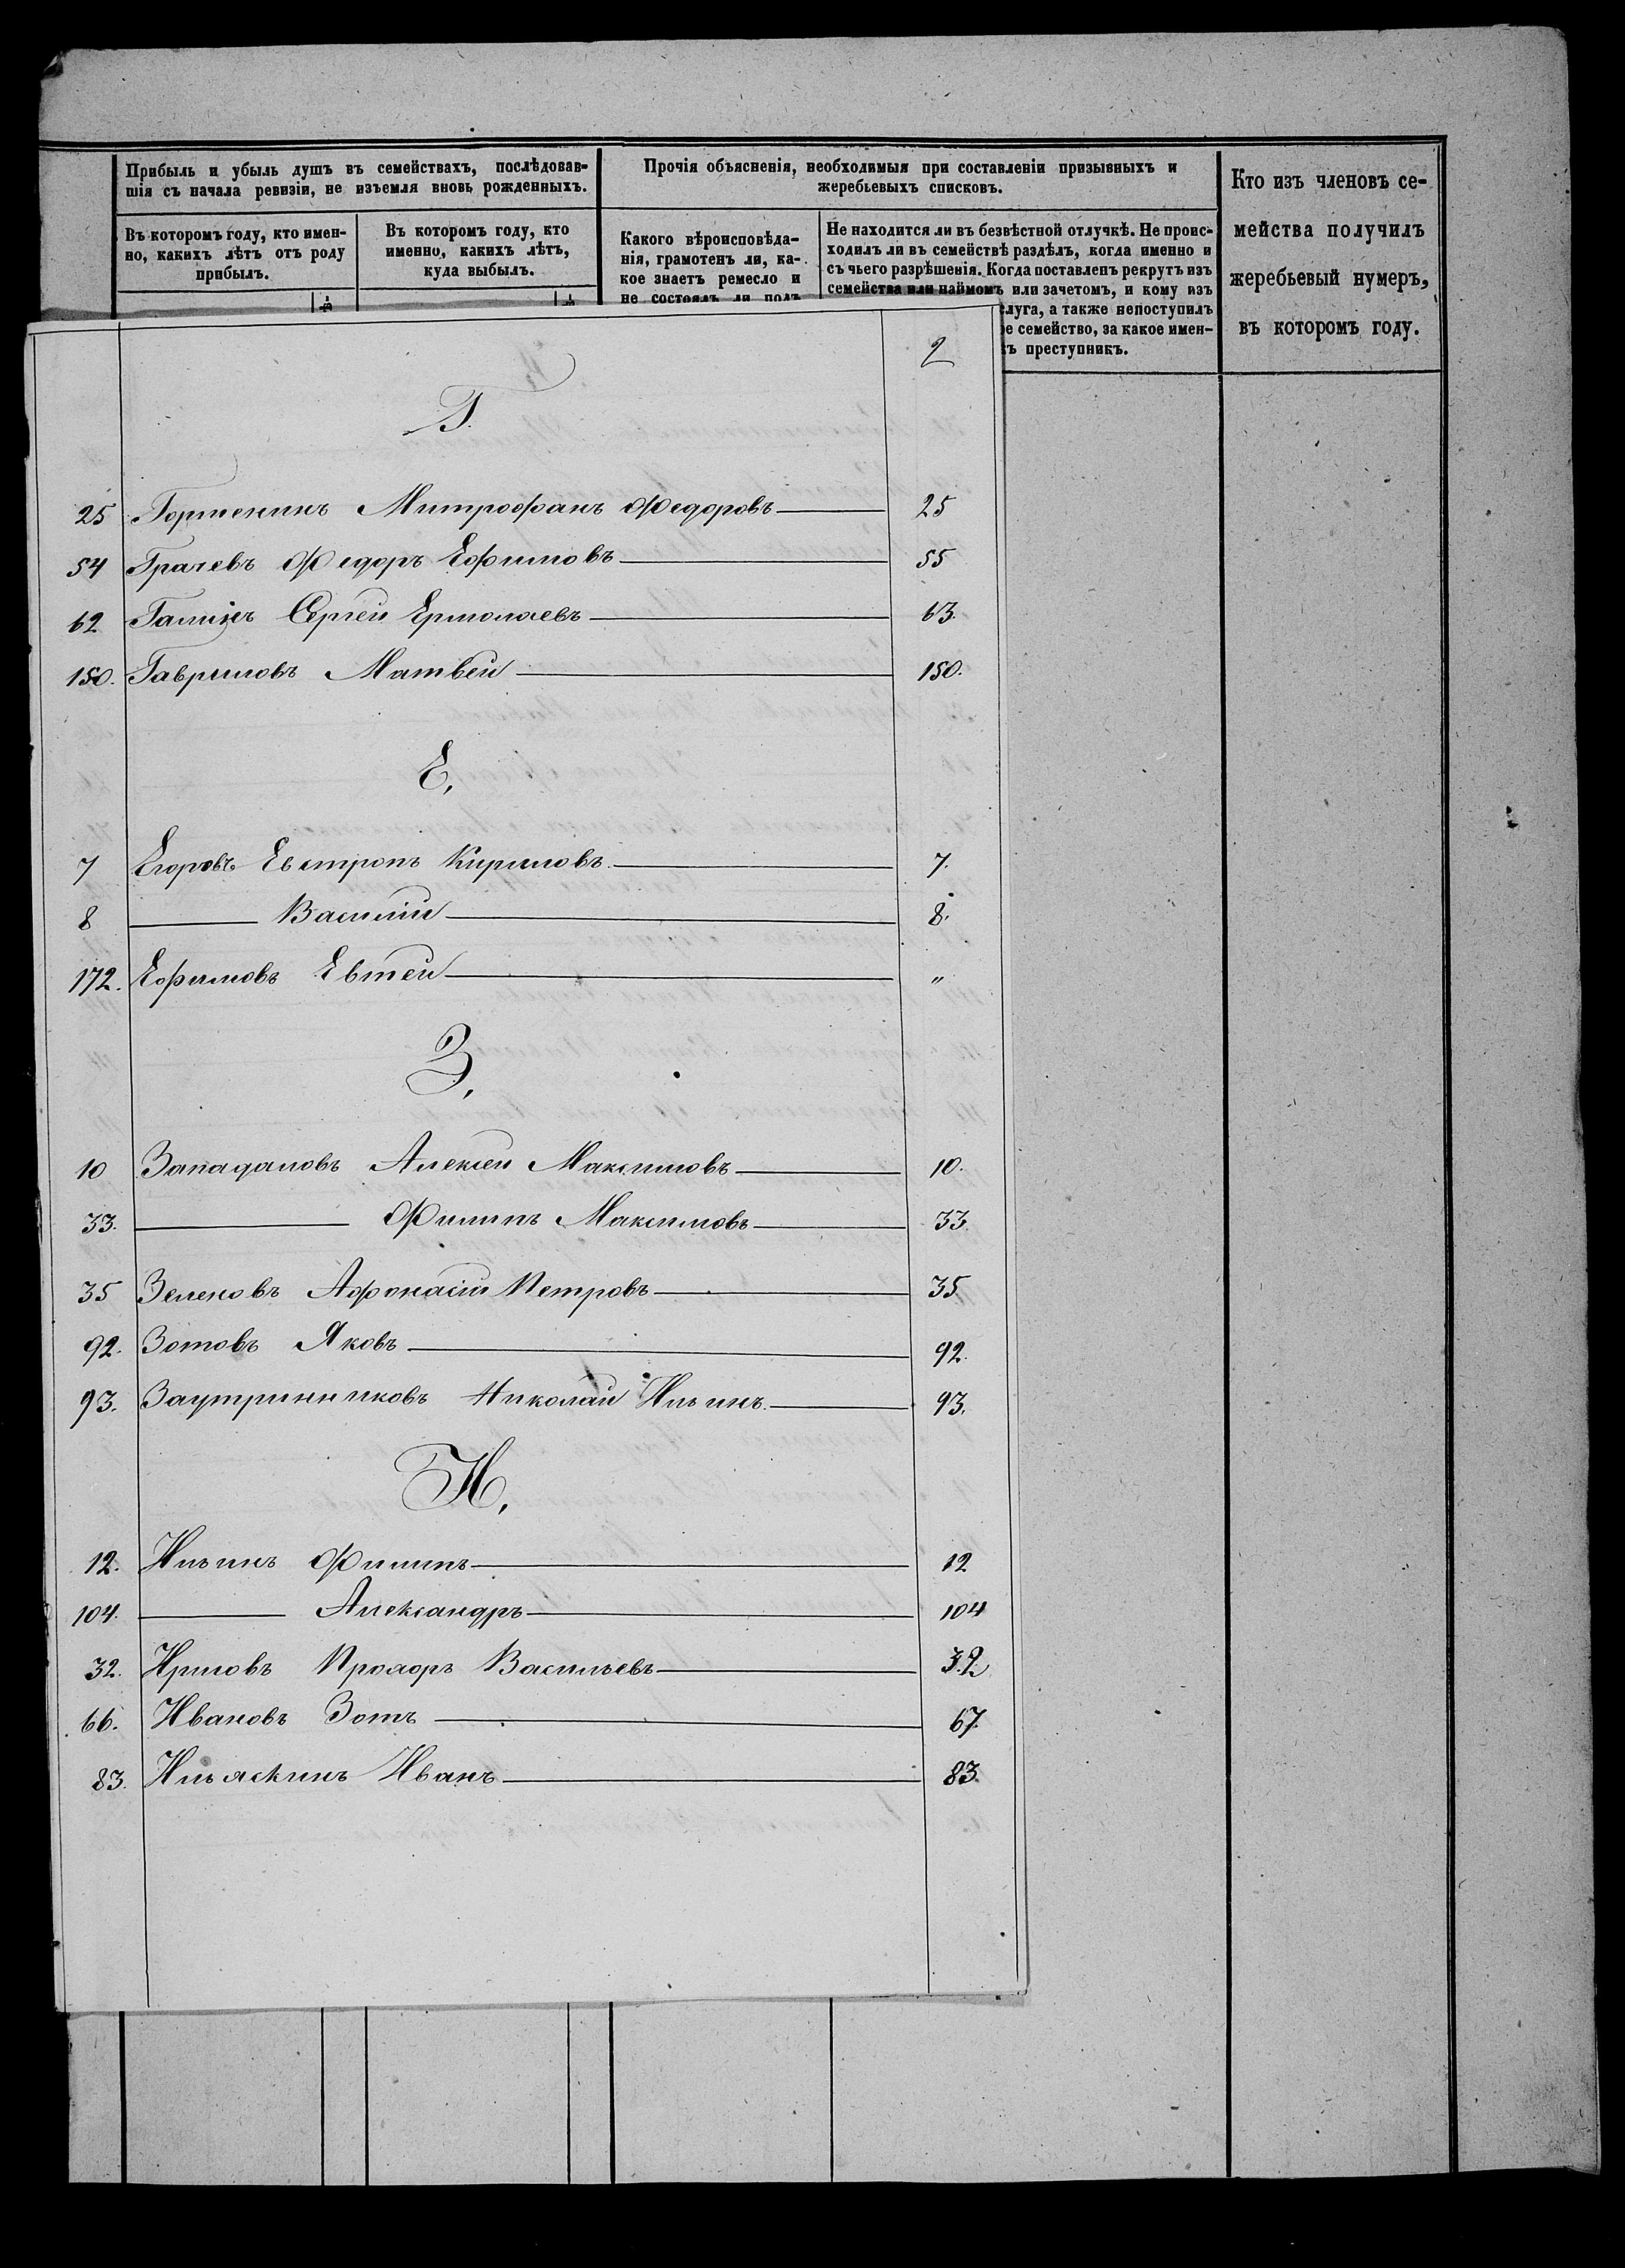 Прибыль и убыль душъ въ семействахъ, послѣдовав-
шія съ начала ревизіи, не изъемля вновь рожденныхъ.
Въ которомъ году, кто имен-
но, какихъ лѣтъ отъ роду
прибылъ.
Въ которомъ году, кто
именно, какихъ лѣтъ,
куда выбылъ.
Прочія объясненія, необходимыя при составленіи призывныхъ и
жеребьевыхъ списковъ.
Какого вѣроисповѣда-
нія, грамотенъ ли, ка-
кое знаетъ ремесло и
не состоялъ ли подъ
Не находится ли въ безвѣстной отлучкѣ. Не проис-
ходилъ ли въ семействѣ раздѣлъ, когда именно и
съ чьего разрѣшенія. Когда поставленъ рекрутъ изъ
семейства или наймомъ или зачетомъ, и кому изъ
слуга, а также непоступилъ
ое семейство, за какое имен-
ъ преступникъ.
Кто изъ членовъ се-
мейства получилъ
жеребьевый нумеръ,
въ которомъ году.
2
Г.
25 Митрофанъ Федоровъ 25
54 Грачевъ Федоръ Ефимовъ 55
62 Сергей Ермолаевъ 63.
150. Гавриловъ Матвей 150.
Е,
7 Егоровъ Евстропъ Кириловъ 7.
8 Василий 8.
172. Ефимовъ Евтей "
З,
10 Западаловъ Алексей Максимовъ 10.
33. Филипъ Максимовъ 33.
35 Зеленовъ Афонасій Петровъ 35
92. Зотовъ Яковъ 92.
93. Заутринниковъ Николай Ильинъ 93.
И,
12. Ильинъ Филипъ 12
104. Александръ 104
32. Ириловъ Прохоръ Васильевъ 32.
66. Ивановъ Зотъ 67.
83. Ильяскинъ Иванъ 83.